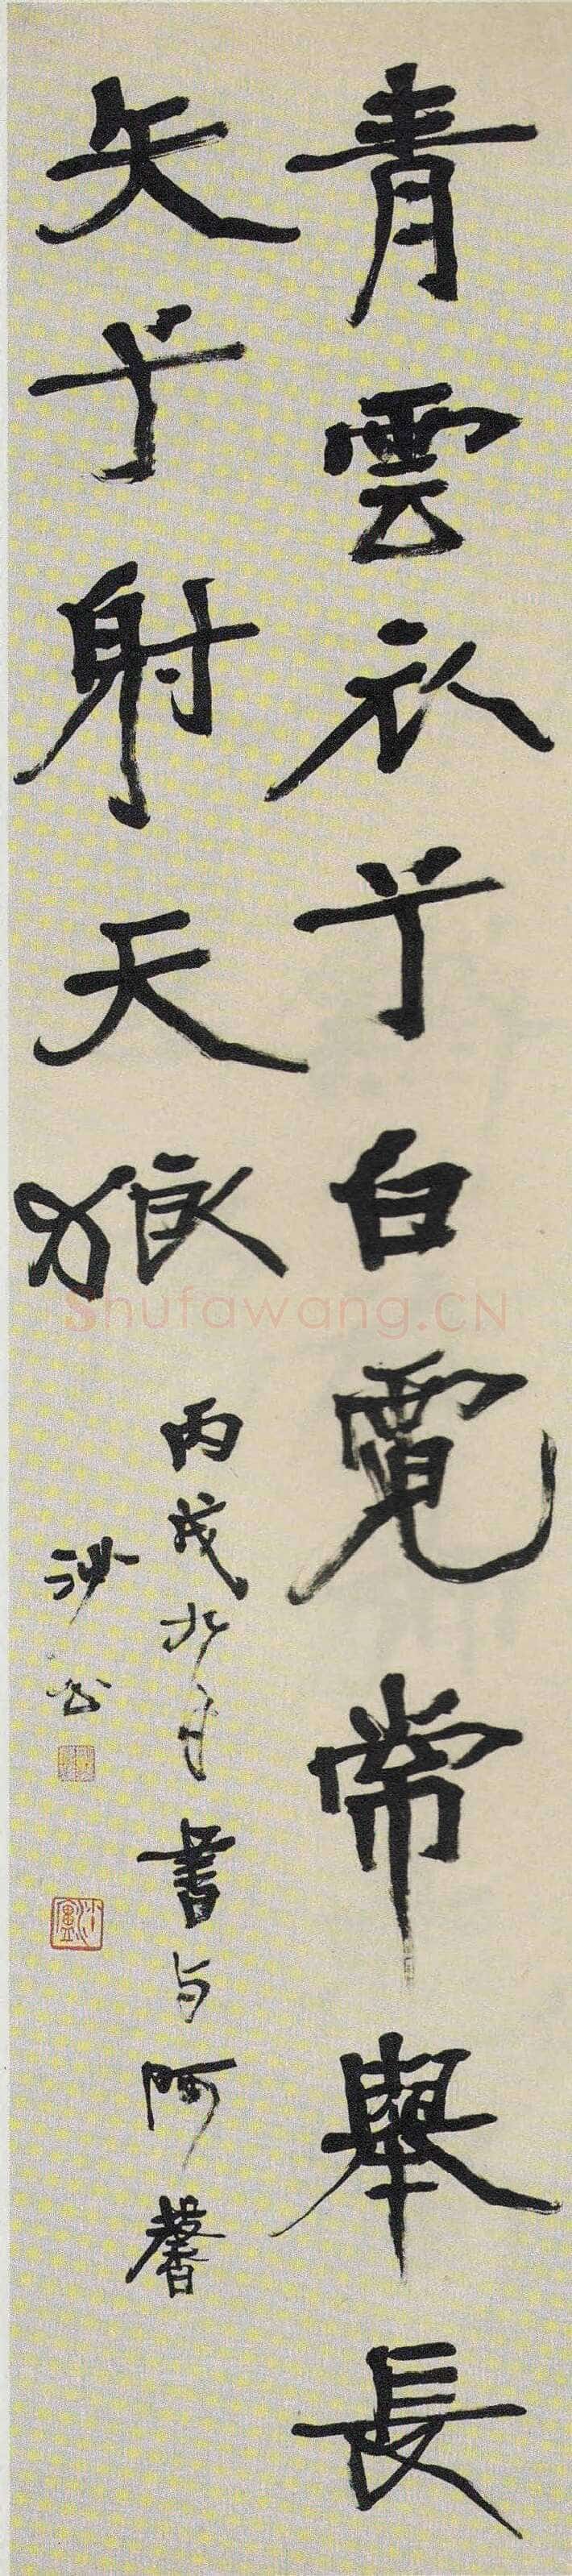 青雲衣兮白霓常舉長
矢兮射天狼
丙戌書与阿馨
沙公
Shufawang.CN